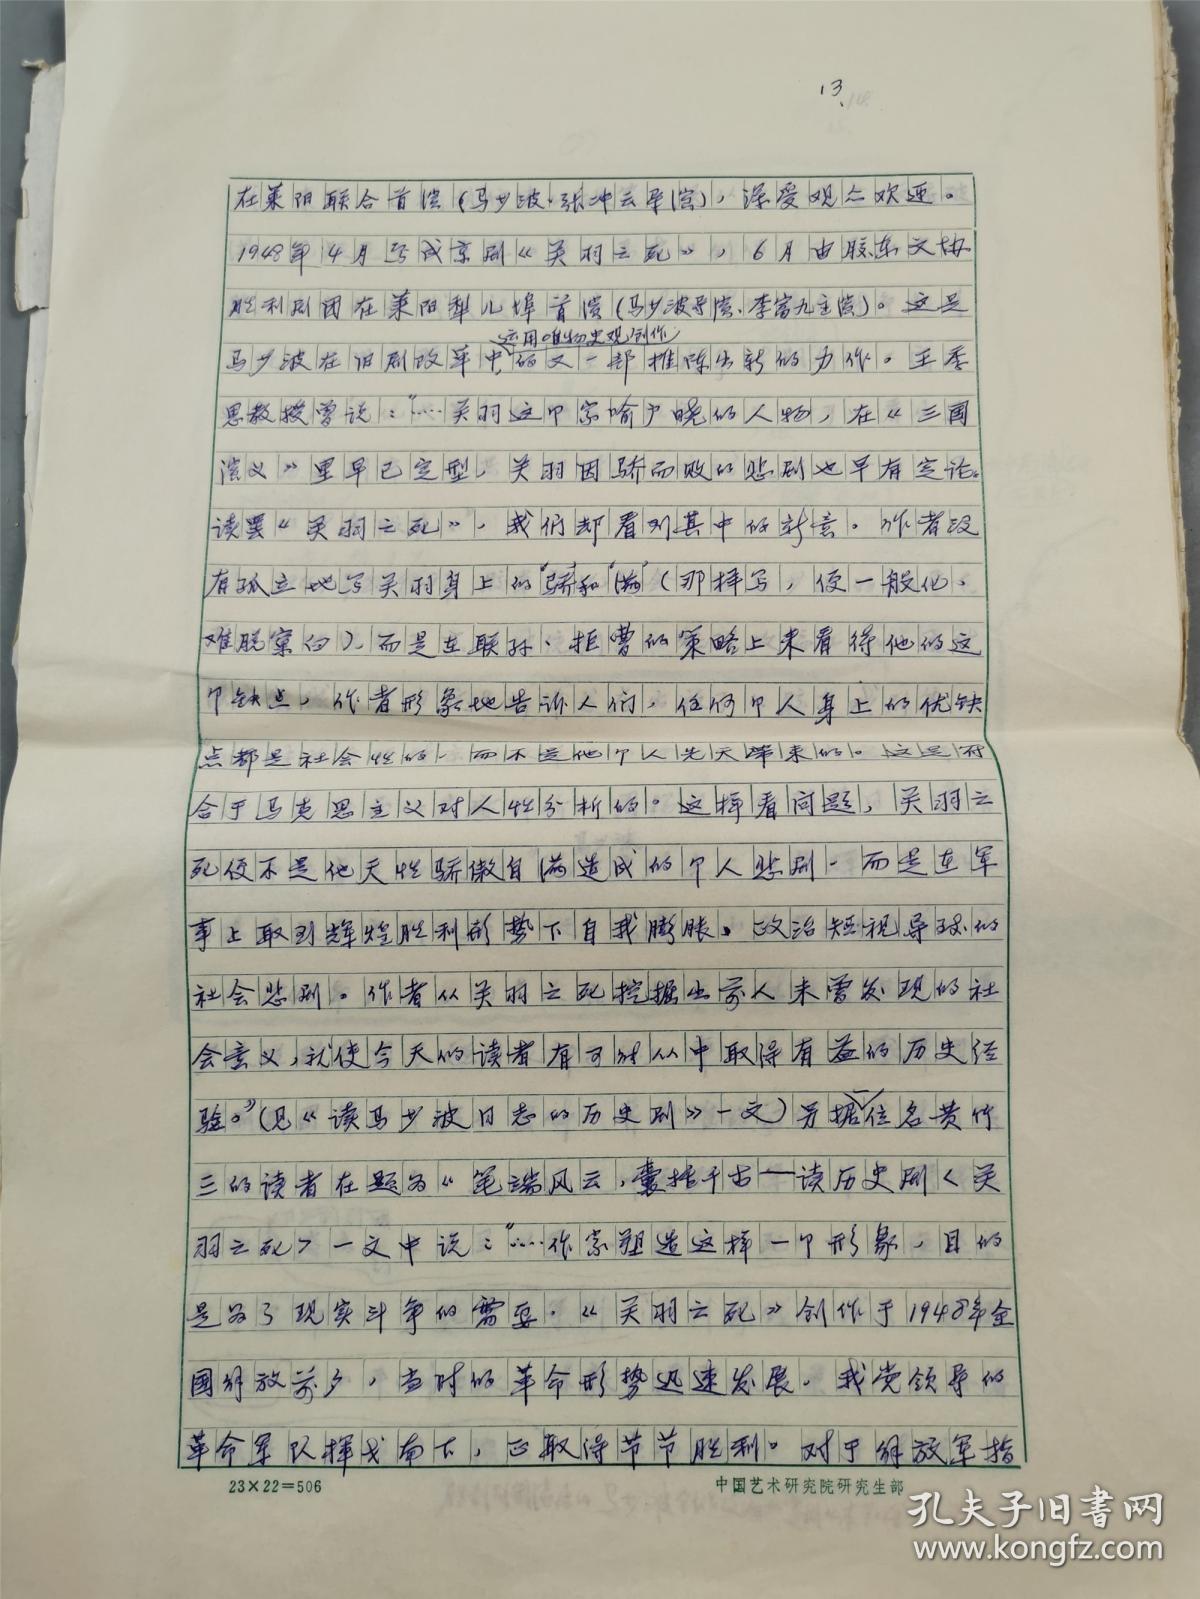 13.
在莱阳联合首演(马少波、张冲云导演)，深受观众欢迎。
1948年4月写成京剧《关羽之死》，6月由胶东文协
胜利剧团在莱阳犁儿埠首演(马少波导演、李富九主演)。这是
运用唯物史观创作
马少波在旧剧改革中的又一部推陈出新的力作。王季
思教授曾说："……关羽这个家喻户晓的人物，在《三国
演义》里早已定型，关羽因骄而败的悲剧也早有定论。
读罢《关羽之死》，我们却看到其中的新意。作者没
有孤立地写关羽身上的"骄"和"满"(那样写，便一般化、
难脱窠臼)，而是在联孙、拒曹的策略上来看待他的这
个缺点，作者形象地告诉人们，任何个人身上的优缺
点都是社会性的，而不是他个人先天带来的。这是符
合于马克思主义对人性分析的。这样看问题，关羽之
死便不是他天性骄傲自满造成的个人悲剧，而是在军
事上取到辉煌胜利形势下自我膨胀，政治短视导致的
社会悲剧。作者从关羽之死挖掘出前人未曾发现的社
会意义，就使今天的读者有可能从中取得有益的历史经
验。"(见《读马少波同志的历史剧》一文)另据一位名黄竹
三的读者在题为《笔端风云，囊括千古——读历史剧〈关
羽之死〉一文中说："……作家塑造这样一个形象，目的
是为了现实斗争的需要。《关羽之死》创作于1948年全
国解放前夕，当时的革命形势迅速发展，我党领导的
革命军队挥戈南下，已取得节节胜利。对于解放军指
23×22=506
中国艺术研究院研究生部
孔夫子旧书网
www.kongfz.com